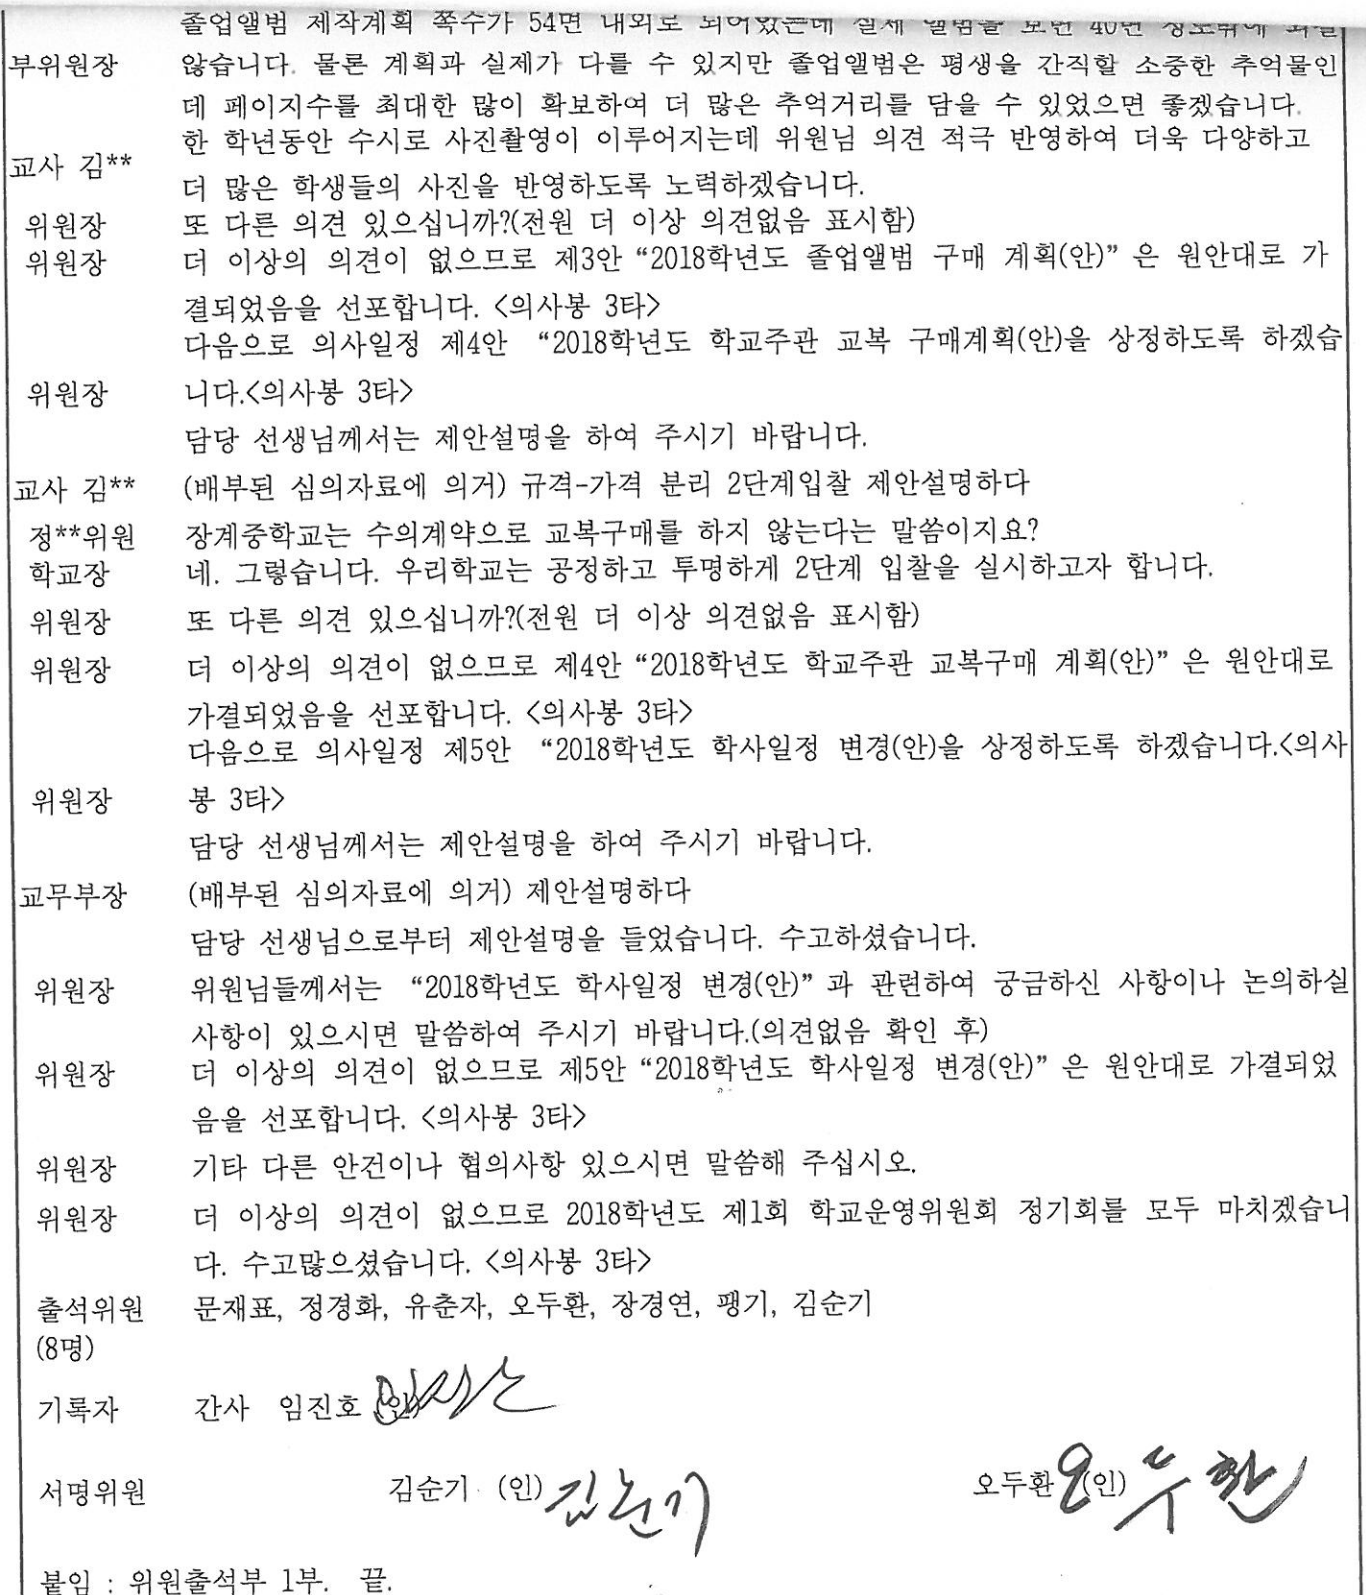 졸업앨범 제작계획 쪽수가 54면 내외로 되어있는데 실제 앨범을 보면 40면 정도밖에 되질
부위원장 않습니다. 물론 계획과 실제가 다를 수 있지만 졸업앨범은 평생을 간직할 소중한 추억물인
데 페이지수를 최대한 많이 확보하여 더 많은 추억거리를 담을 수 있었으면 좋겠습니다.
한 학년동안 수시로 사진촬영이 이루어지는데 위원님 의견 적극 반영하여 더욱 다양하고
교사 김**
더 많은 학생들의 사진을 반영하도록 노력하겠습니다.
위원장 또 다른 의견 있으십니까?(전원 더 이상 의견없음 표시함)
위원장 더 이상의 의견이 없으므로 제3안 “2018학년도 졸업앨범 구매 계획(안)” 은 원안대로 가
결되었음을 선포합니다. <의사봉 3타>
다음으로 의사일정 제4안 “2018학년도 학교주관 교복 구매계획(안)을 상정하도록 하겠습
위원장 니다.<의사봉 3타>
담당 선생님께서는 제안설명을 하여 주시기 바랍니다.
교사 김** (배부된 심의자료에 의거) 규격-가격 분리 2단계입찰 제안설명하다
정**위원 장계중학교는 수의계약으로 교복구매를 하지 않는다는 말씀이지요?
학교장 네. 그렇습니다. 우리학교는 공정하고 투명하게 2단계 입찰을 실시하고자 합니다.
위원장 또 다른 의견 있으십니까?(전원 더 이상 의견없음 표시함)
위원장 더 이상의 의견이 없으므로 제4안 “2018학년도 학교주관 교복구매 계획(안)” 은 원안대로
가결되었음을 선포합니다. <의사봉 3타>
다음으로 의사일정 제5안 “2018학년도 학사일정 변경(안)을 상정하도록 하겠습니다.<의사
위원장 봉 3타>
담당 선생님께서는 제안설명을 하여 주시기 바랍니다.
교무부장 (배부된 심의자료에 의거) 제안설명하다
담당 선생님으로부터 제안설명을 들었습니다. 수고하셨습니다.
위원장 위원님들께서는 “2018학년도 학사일정 변경(안)” 과 관련하여 궁금하신 사항이나 논의하실
사항이 있으시면 말씀하여 주시기 바랍니다.(의견없음 확인 후)
위원장 더 이상의 의견이 없으므로 제5안 “2018학년도 학사일정 변경(안)” 은 원안대로 가결되었
음을 선포합니다. <의사봉 3타>
위원장 기타 다른 안건이나 협의사항 있으시면 말씀해 주십시오.
위원장 더 이상의 의견이 없으므로 2018학년도 제1회 학교운영위원회 정기회를 모두 마치겠습니
다. 수고많으셨습니다. <의사봉 3타>
출석위원 문재표, 정경화, 유춘자, 오두환, 장경연, 팽기, 김순기
(8명)
기록자 간사 임진호 (인)
서명위원 김순기 (인) 김순기 오두환 (인) 오두환
붙임 : 위원출석부 1부. 끝.